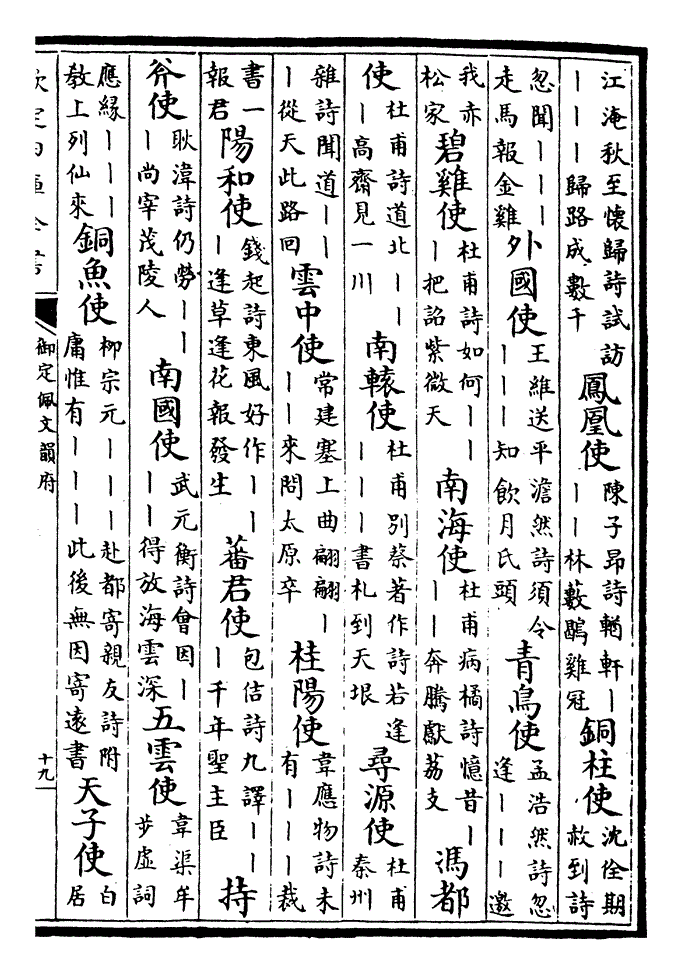 江淹秋至懷歸詩試訪｜｜｜歸路成數千 鳳凰使 陳子昻詩輶軒｜｜｜林藪鶡雞冠 銅柱使 沈佺期赦到詩
忽聞｜｜｜走馬報金雞 外國使 王維送平澹然詩須令｜｜｜知飲月氏頭 青鳥使 孟浩然詩忽逢｜｜｜邀
我赤松家 碧雞使 杜甫詩如何｜｜｜把詔紫微天 南海使 杜甫病橘詩憶昔｜｜｜奔騰獻荔支 馮都
使 杜甫詩道北｜｜｜高齋見一川 南轅使 杜甫別蔡著作詩若逢｜｜｜書札到天垠 尋源使 杜甫秦州
雜詩聞道｜｜｜從天此路回 雲中使 常建塞上曲翩翩｜｜｜來問太原卒 桂陽使 韋應物詩未有｜｜｜裁
書一報君 陽和使 錢起詩東風好作｜｜｜逢草逢花報發生 蕃君使 包佶詩九譯｜｜｜千年聖主臣 持
斧使 耿湋詩仍勞｜｜｜尚宰茂陵人 南國使 武元衡詩會因｜｜｜得放海雲深 五雲使 韋渠牟步虛詞
應緣｜｜｜敎上列仙來 銅魚使 柳宗元｜｜｜赴都寄親友詩附庸惟有｜｜｜此後無因寄遠書 天子使 白居
欽定四庫全書 御定佩文韻府 十九